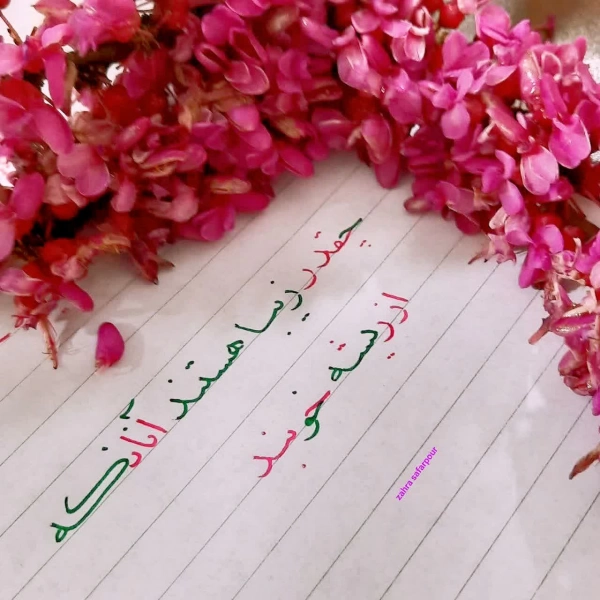 چقدر زیبا هستند آنانکه
از ریشه خوبند
zahra safarpour